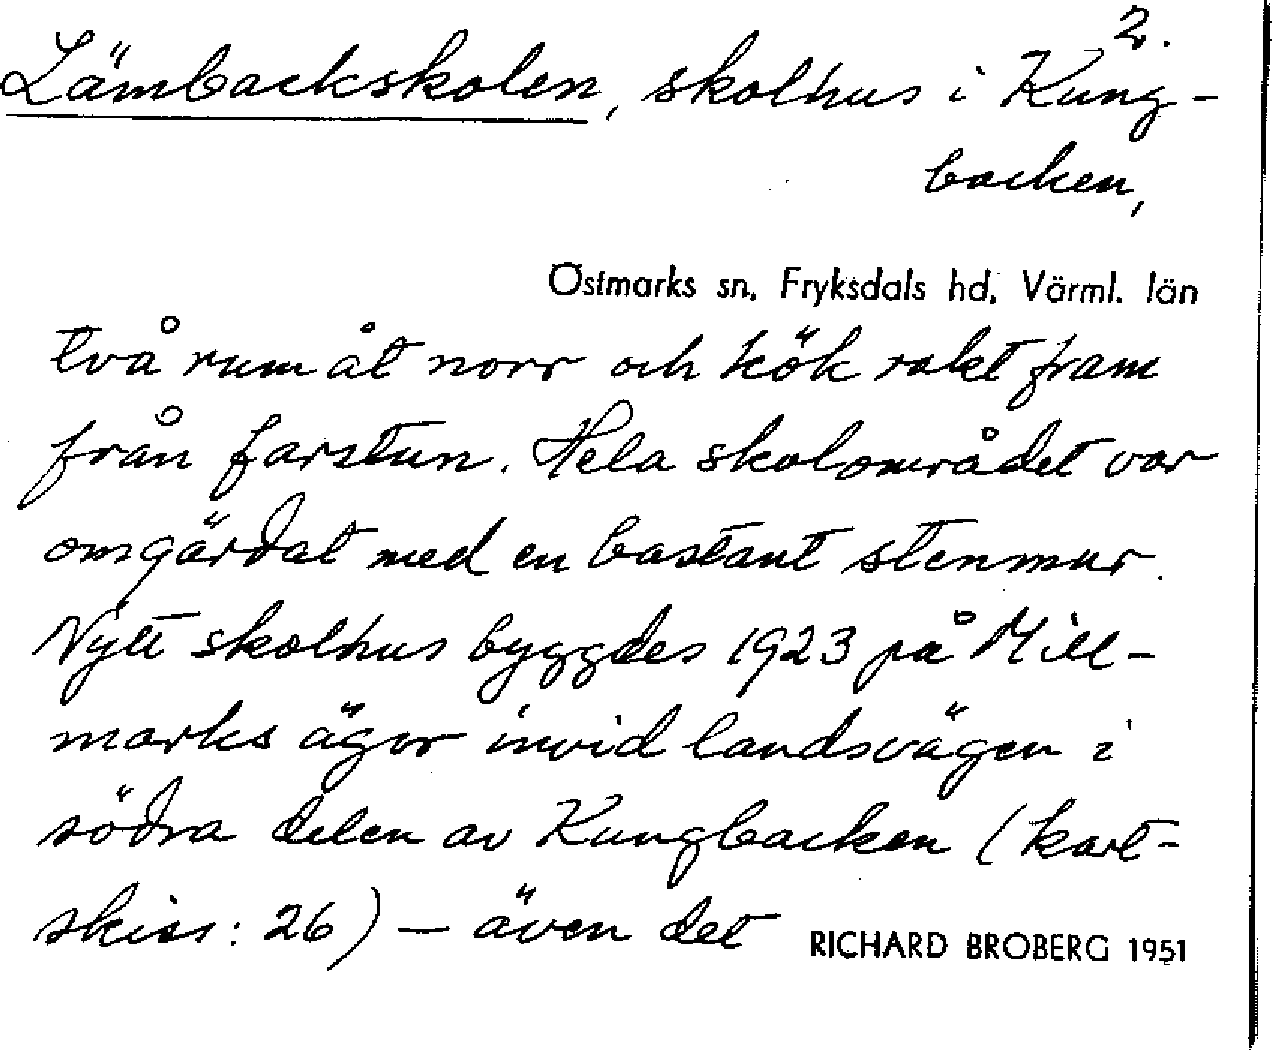 2.
Lämbackskolen, skolhus i Kung-
backen,
Östmarks sn. Fryksdals hd. Värml. län
två rum åt norr och kök rakt fram
från farstun. Hela skolområdet var
omgärdat med en bastant stenmur.
Nytt skolhus byggdes 1923 på Mill-
marks ägor invid landsvägen i
södra delen av Kungbacken (kart-
skiss: 26) – även det
RICHARD BROBERG 1951